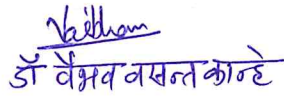 Vaibham
डॉ वैभव वसन्त कान्हे